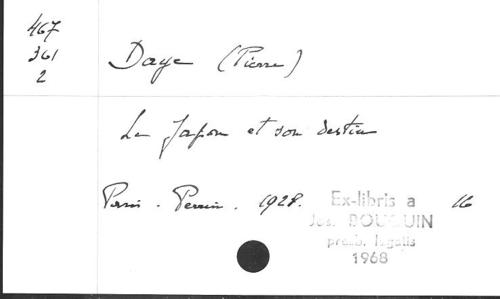 467
361
2
Daye (Pierre)
Le Japon et son destin
Paris - Perrin. 1928. 16
Ex-libris a
Jos. BOUQUIN
presb. legatis
1968